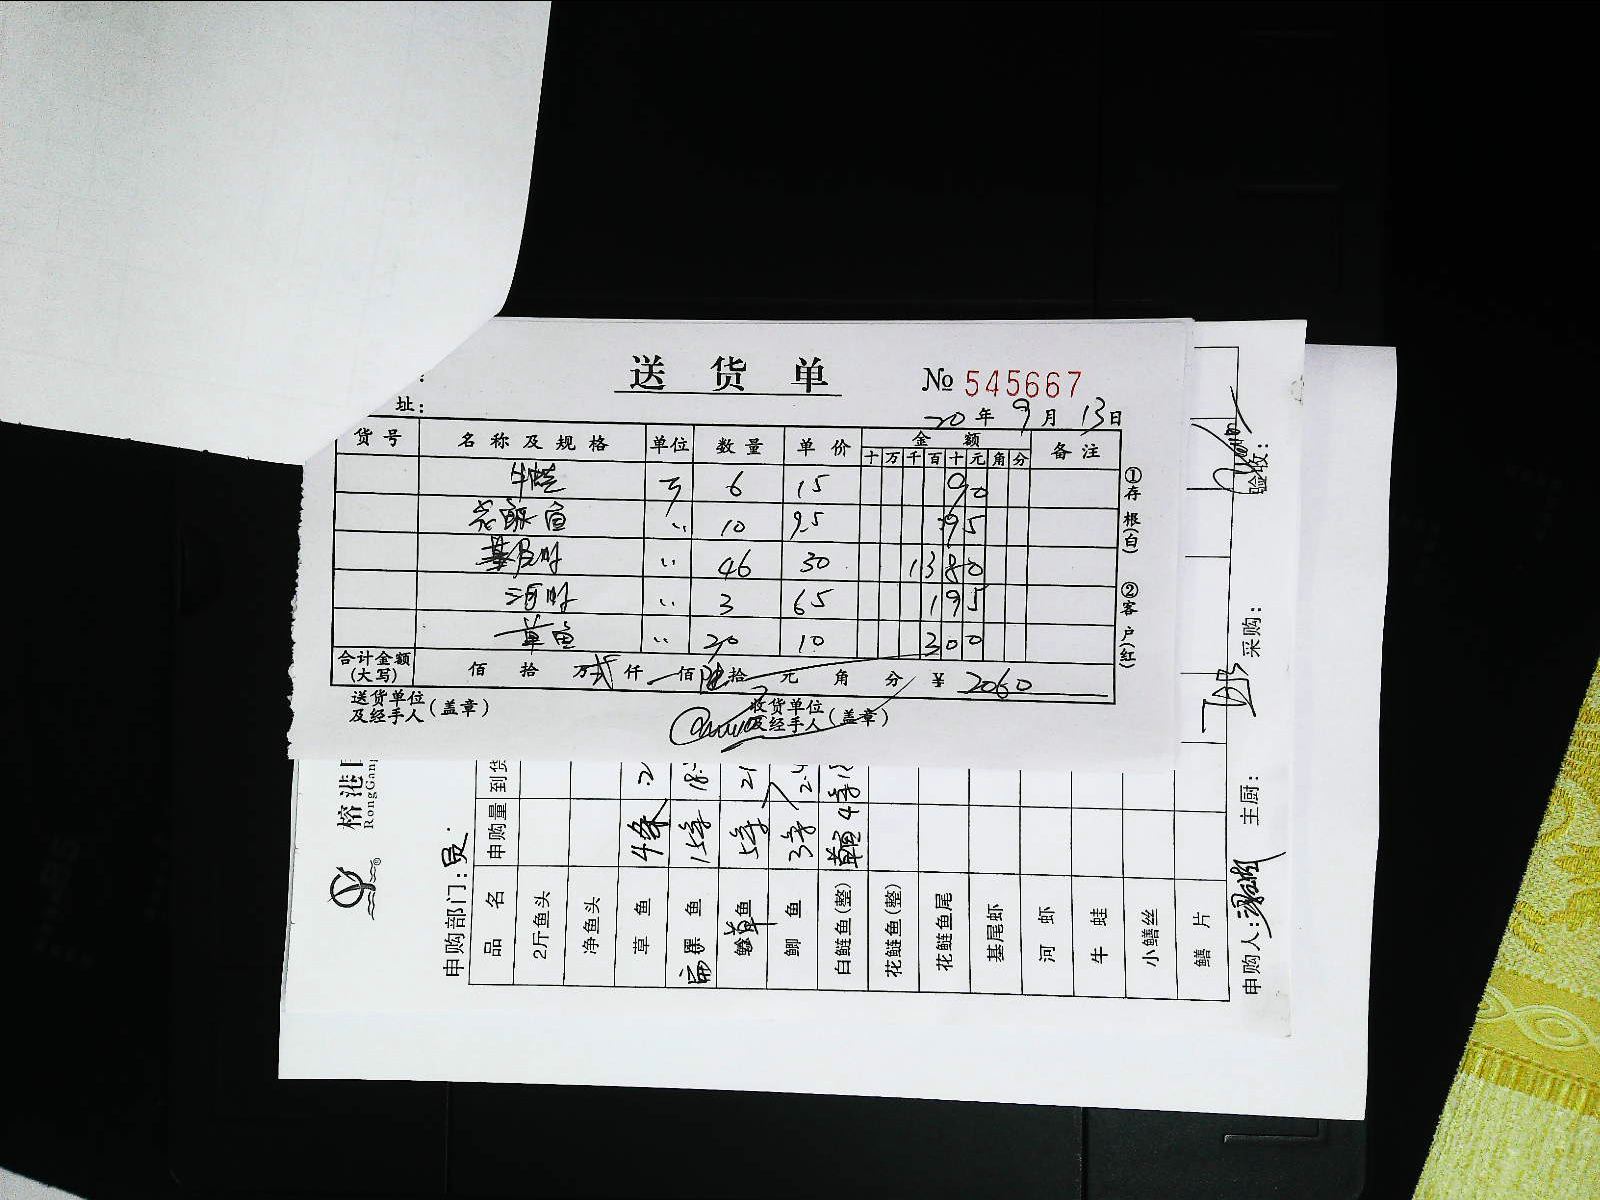 送 货 单 № 545667
址：
20 年 9 月 13 日
货号 名称及规格 单位 数量 单价 金额 备注
十 万 千 百 十 元 角 分
牛蛙 斤 6 15 90
花鲢鱼 〃 10 9.5 95
基尾虾 〃 46 30 1380
河虾 〃 3 65 195
草鱼 〃 10 300
合计金额 (大写) 佰 拾 万 贰 仟 佰 陆 拾 元 角 分 ¥ 2060
送货单位及经手人（盖章）
收货单位及经手人（盖章）
①存根(白) ②客户(红)
榕港
RongGang
申购部门：员
品名 申购量 到货
2斤鱼头
净鱼头
草鱼 4条
鱼 15条 18.
草鱼 5条 21
鲫鱼 3条 2.
白鲢鱼(整) 草鱼 4条
花鲢鱼(整)
花鲢鱼尾
基尾虾
河虾
牛蛙
小鳝丝
鳝片
申购人： 主厨： 采购： 验收：